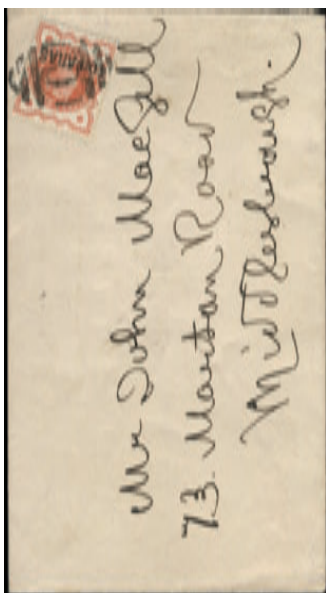 Mr John MacGill
73. Marton Road
Middlesbrough.